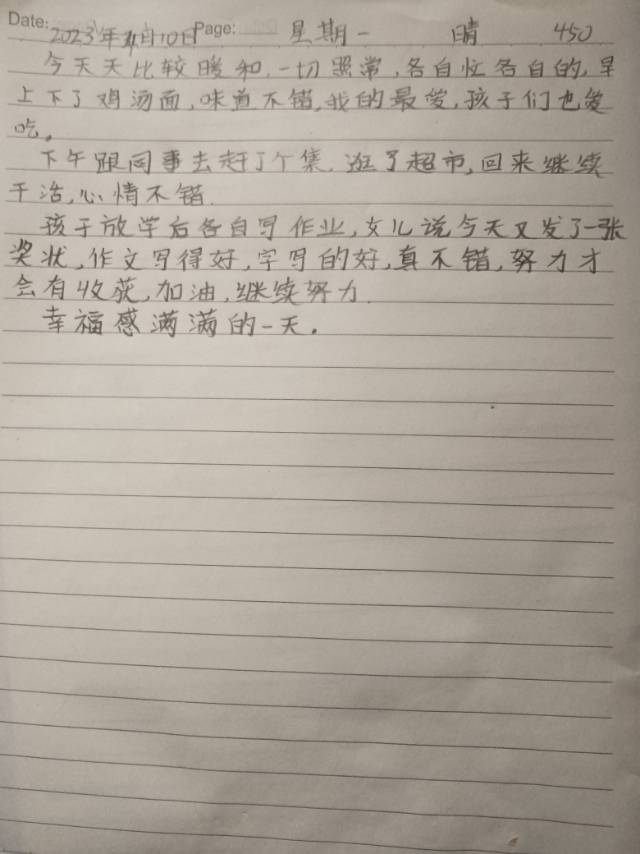 Date: 2023年4月10日 Page: 星期一 晴 450
今天天比较暖和,一切照常,各自忙各自的,早
上下了鸡汤面,味道不错,我的最爱,孩子们也爱
吃。
下午跟同事去赶了个集.逛了超市,回来继续
干活,心情不错.
孩子放学后各自写作业,女儿说今天又发了一张
奖状,作文写得好,字写的好,真不错,努力才
会有收获,加油,继续努力.
幸福感满满的一天.